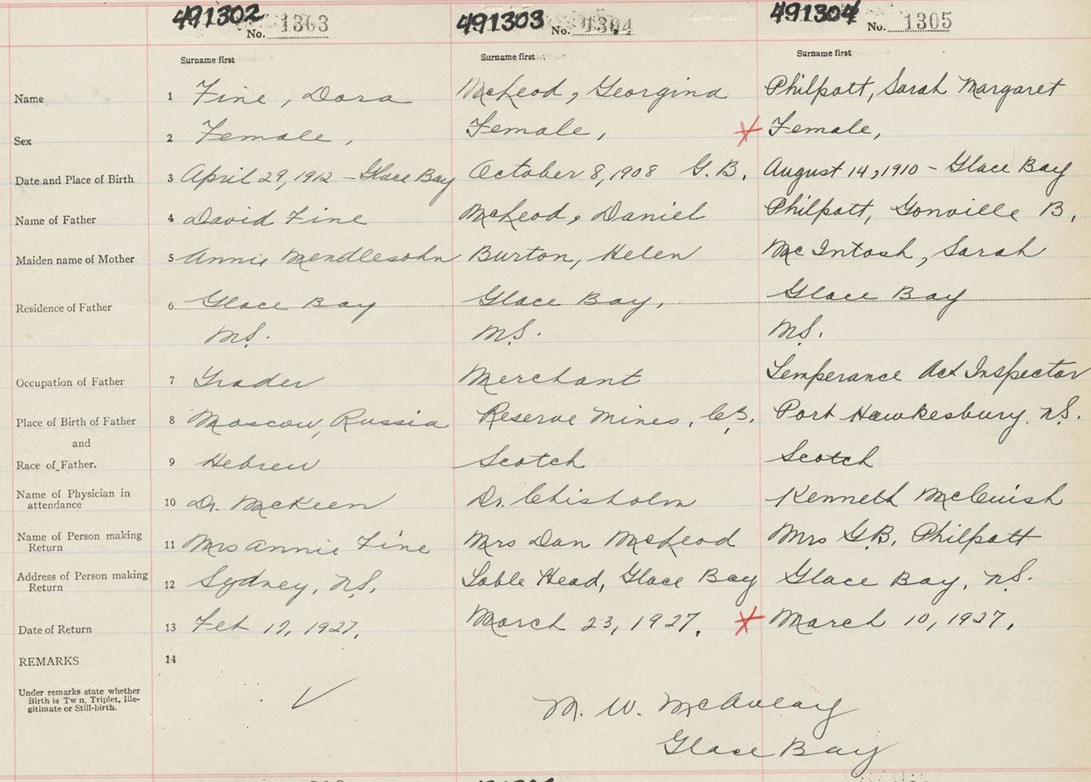 491302 No. 1303 491303 No. 1304 491304 No. 1305
Surname first Surname first Surname first
Name 1 Fine, Dora McLeod, Georgina Philpott, Sarah Margaret
Sex 2 Female, Female, Female,
Date and Place of Birth 3 April 29, 1912 - Glace Bay October 8, 1908 G.B. August 14, 1910 - Glace Bay
Name of Father 4 David Fine McLeod, Daniel Philpott, Gonville B.
Maiden name of Mother 5 Annie Mendlesohn Burton, Helen McIntosh, Sarah
Residence of Father 6 Glace Bay Glace Bay, Glace Bay
N.S. N.S. N.S.
Occupation of Father 7 Trader Merchant Temperance Act Inspector
Place of Birth of Father 8 Moscow, Russia Reserve Mines, C.B. Port Hawkesbury, N.S.
and
Race of Father. 9 Hebrew Scotch Scotch
Name of Physician in
attendance 10 Dr. McKeen Dr. Chisholm Kenneth McCuish
Name of Person making
Return 11 Mrs Annie Fine Mrs Dan McLeod Mrs G.B. Philpott
Address of Person making
Return 12 Sydney, N.S. Table Head, Glace Bay Glace Bay, N.S.
Date of Return 13 Feb 17, 1927. March 23, 1927. March 10, 1927.
REMARKS 14
Under remarks state whether
Birth is Twn, Triplet, Ille-
gitimate or Still-birth.
M. W. McAulay
Glace Bay